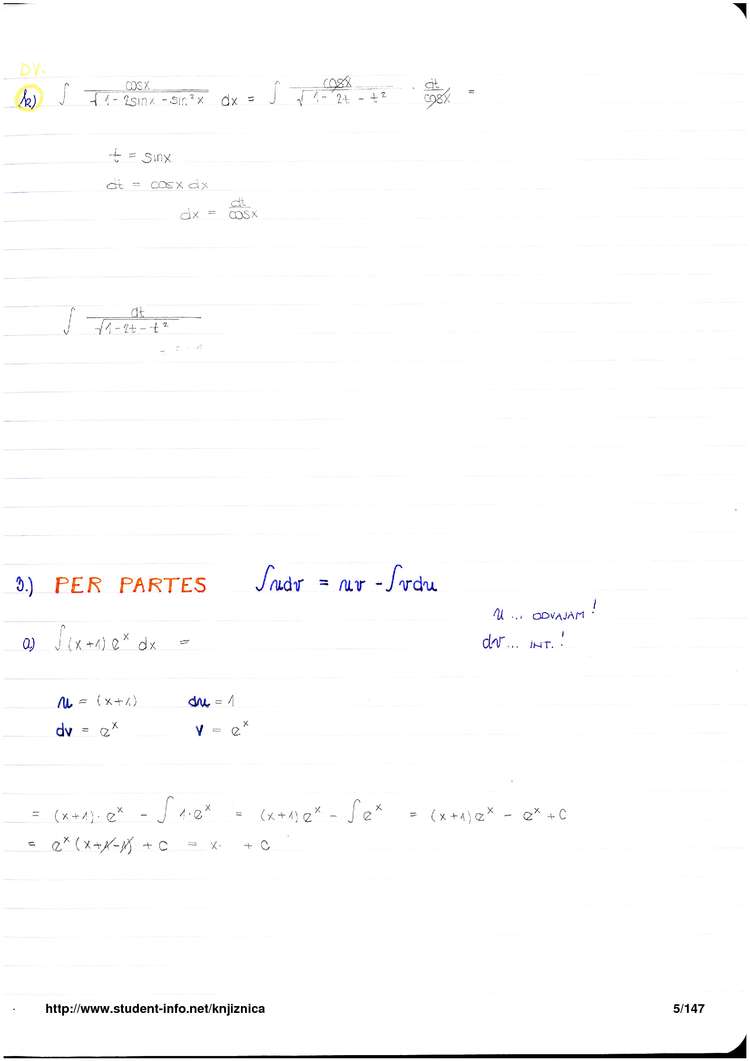 DV.
k) ∫ cosx / √(1 - 2sinx - sin²x) dx = ∫ cosx / √(1 - 2t - t²) · dt / cosx =
t = sinx
dt = cosx dx
dx = dt / cosx
∫ dt / √(1 - 2t - t²)
3.) PER PARTES ∫udv = uv - ∫vdu
u ... ODVAJAM!
a) ∫(x+1) e^x dx =
dv ... INT.!
u = (x+1) du = 1
dv = e^x v = e^x
= (x+1)· e^x - ∫ 1·e^x = (x+1)e^x - ∫e^x = (x+1)e^x - e^x + C
= e^x (x+1-1) + C = x· + C
http://www.student-info.net/knjiznica 5/147